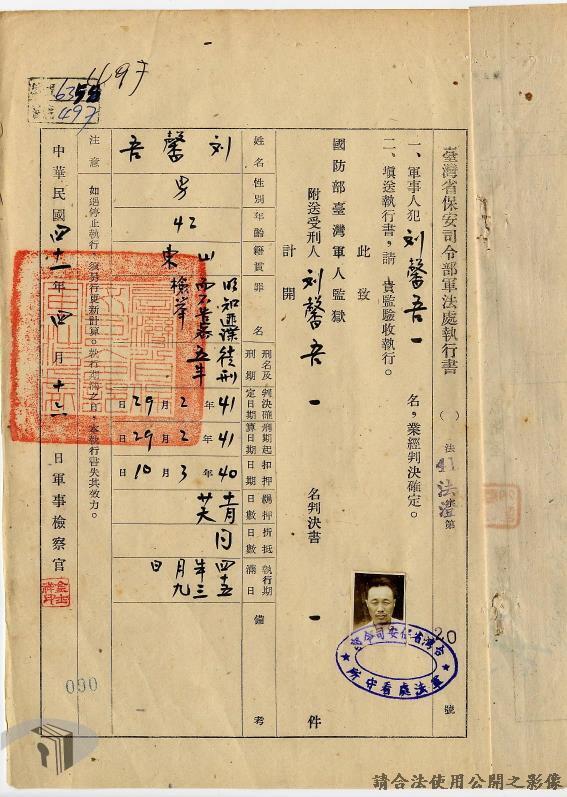 臺灣省保安司令部軍法處執行書
法
41 法
字第
20
號
一、軍事人犯 刘馨吾 一 名，業經判決確定。
二、填送執行書，請 貴監驗收執行。
此致
國防部臺灣軍人監獄
附送受刑人 刘馨吾 一 名判決書 一 件
計開
姓名
性別
年齡
籍貫
罪名
刑名及刑期
判決確定日期
刑期起算日期
扣押日期
羈押日數
折抵日數
執行期滿日
備考
刘馨吾
男
42
山東
明知匪諜而不告密檢举
徒刑五年
41年2月29日
41年2月29日
40年3月10日
同
四五年三月九日
注意
如遇停止執行，須另行更新計算。執行期滿之日，本執行書失其效力。
中華民國四十一年四月十二日軍事檢察官
台灣省保安司令部
軍法處看守所
6355
497
1497
090
請合法使用公開之影像